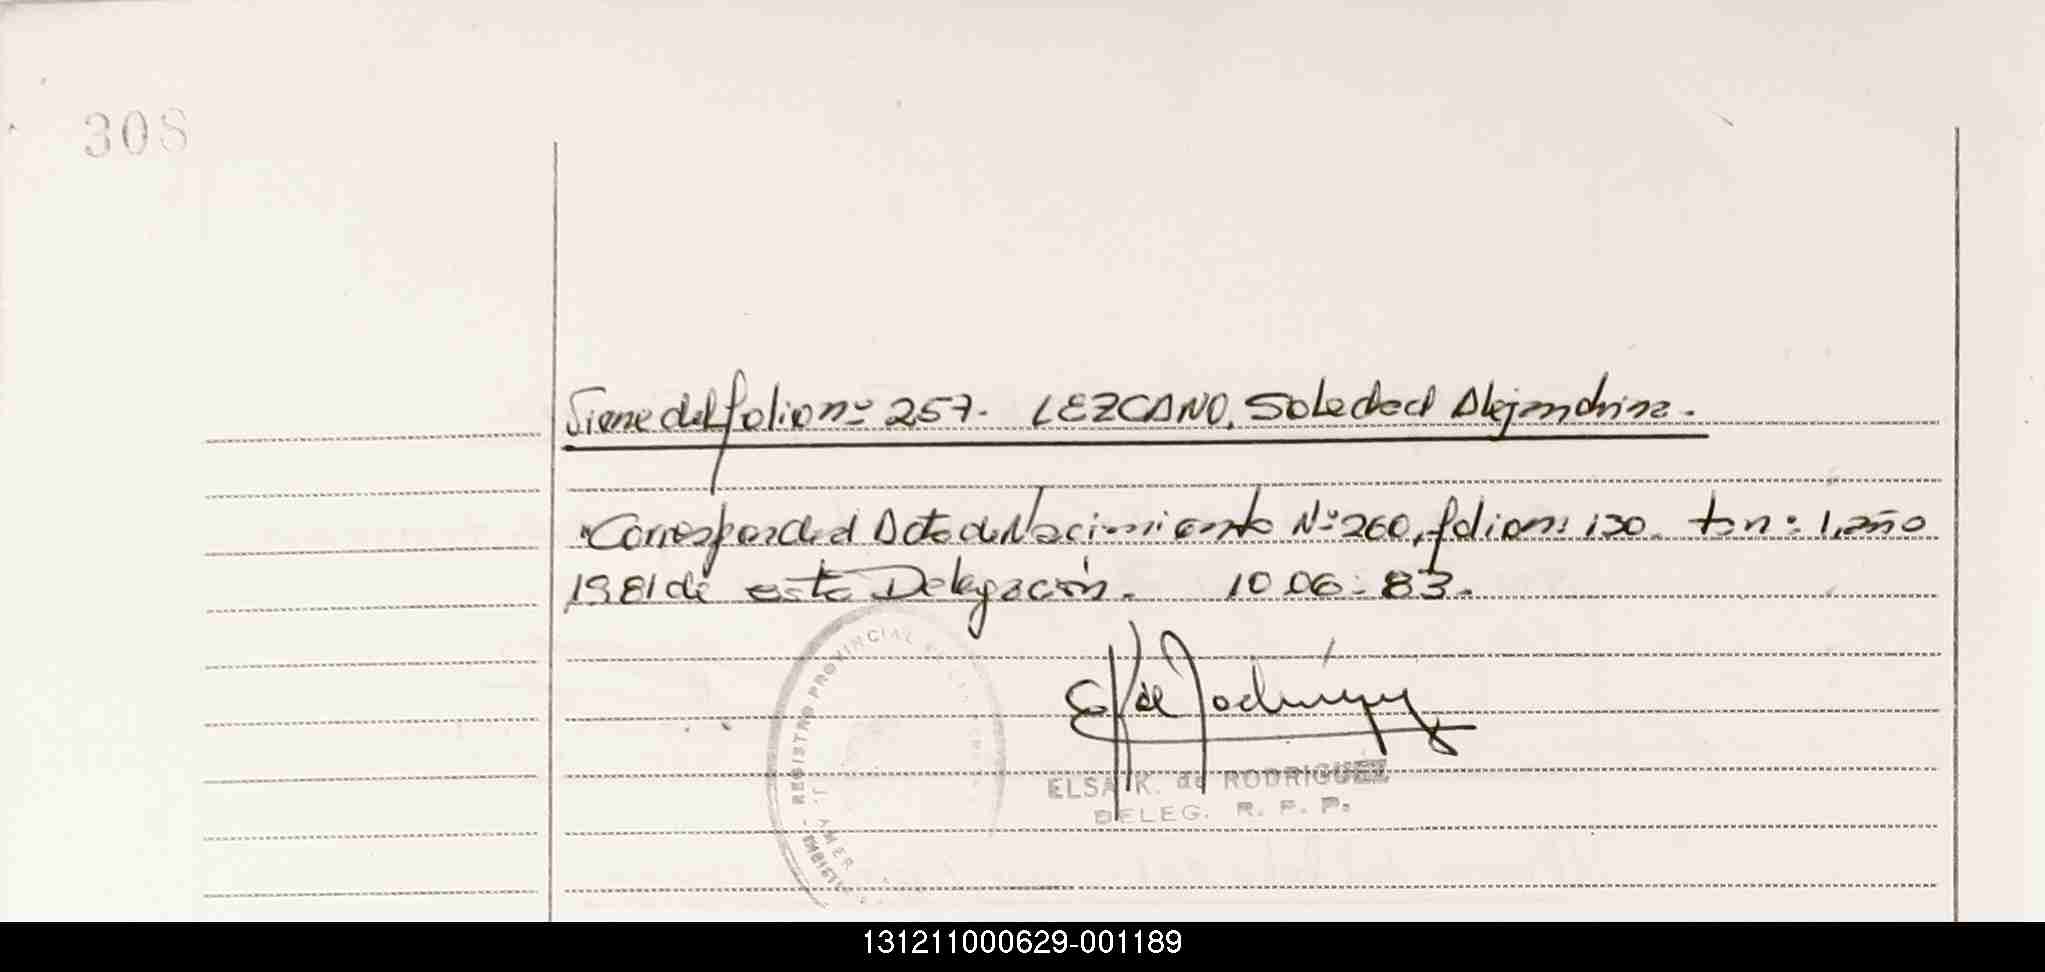 308
Viene del folio nº 257. LEZCANO, Soledad Alejandrina.
"Corresponde al Acta de Nacimiento Nº 260, folio nº 130. to nº 1, año
1981 de esta Delegación. 10.06.83.
E K de Rodríguez
ELSA K. de RODRIGUEZ
DELEG. R. P. P.
REGISTRO PROVINCIAL
131211000629-001189